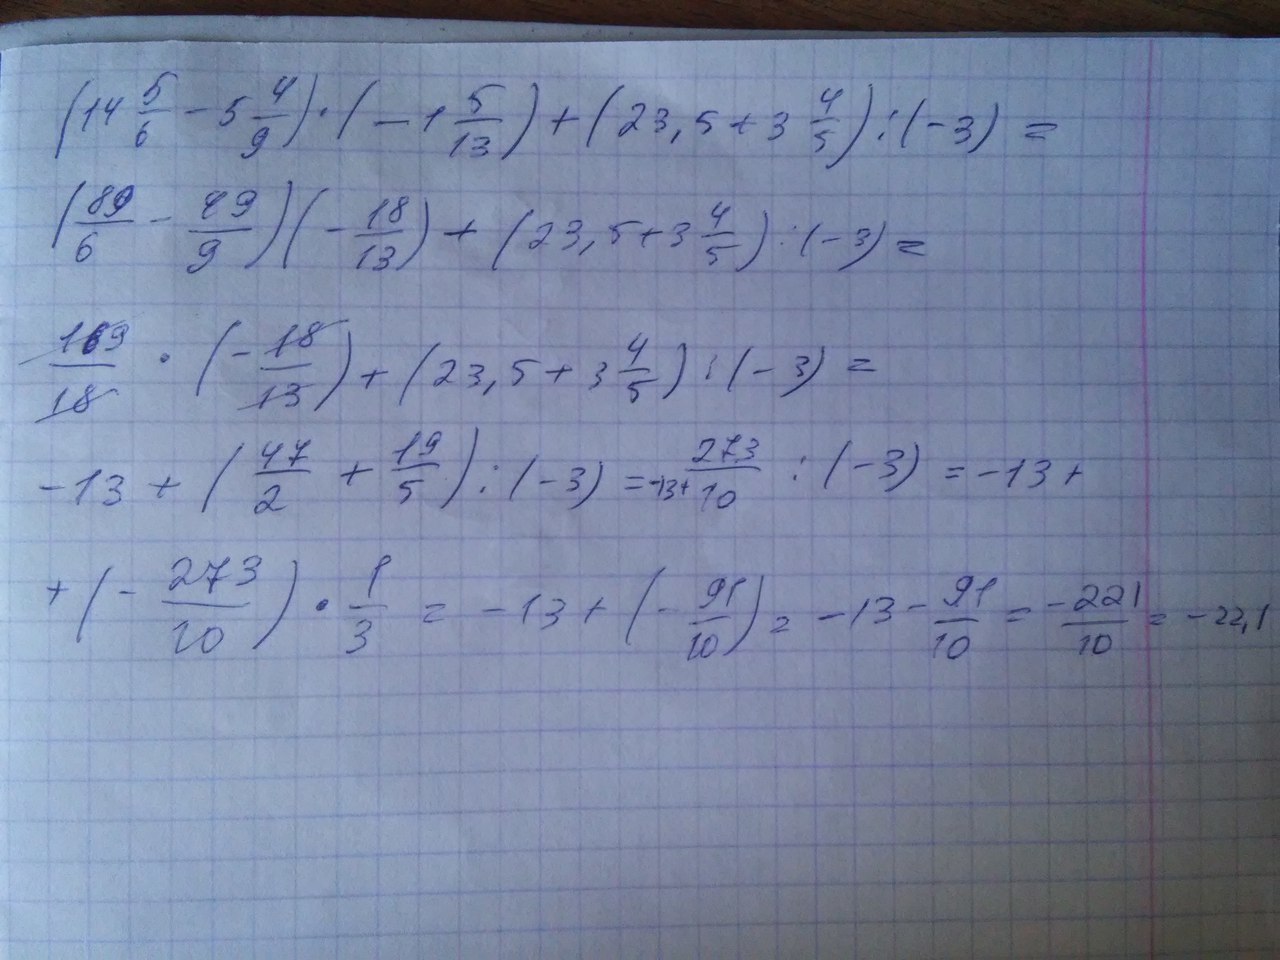 (14 5/6 - 5 4/9) · (-1 5/13) + (23,5 + 3 4/5) : (-3) =
(89/6 - 49/9)(-18/13) + (23,5 + 3 4/5) : (-3) =
169/18 · (-18/13) + (23,5 + 3 4/5) : (-3) =
-13 + (47/2 + 19/5) : (-3) = -13 + 273/10 : (-3) = -13 +
+ (-273/10) · 1/3 = -13 + (-91/10) = -13 - 91/10 = -221/10 = -22,1